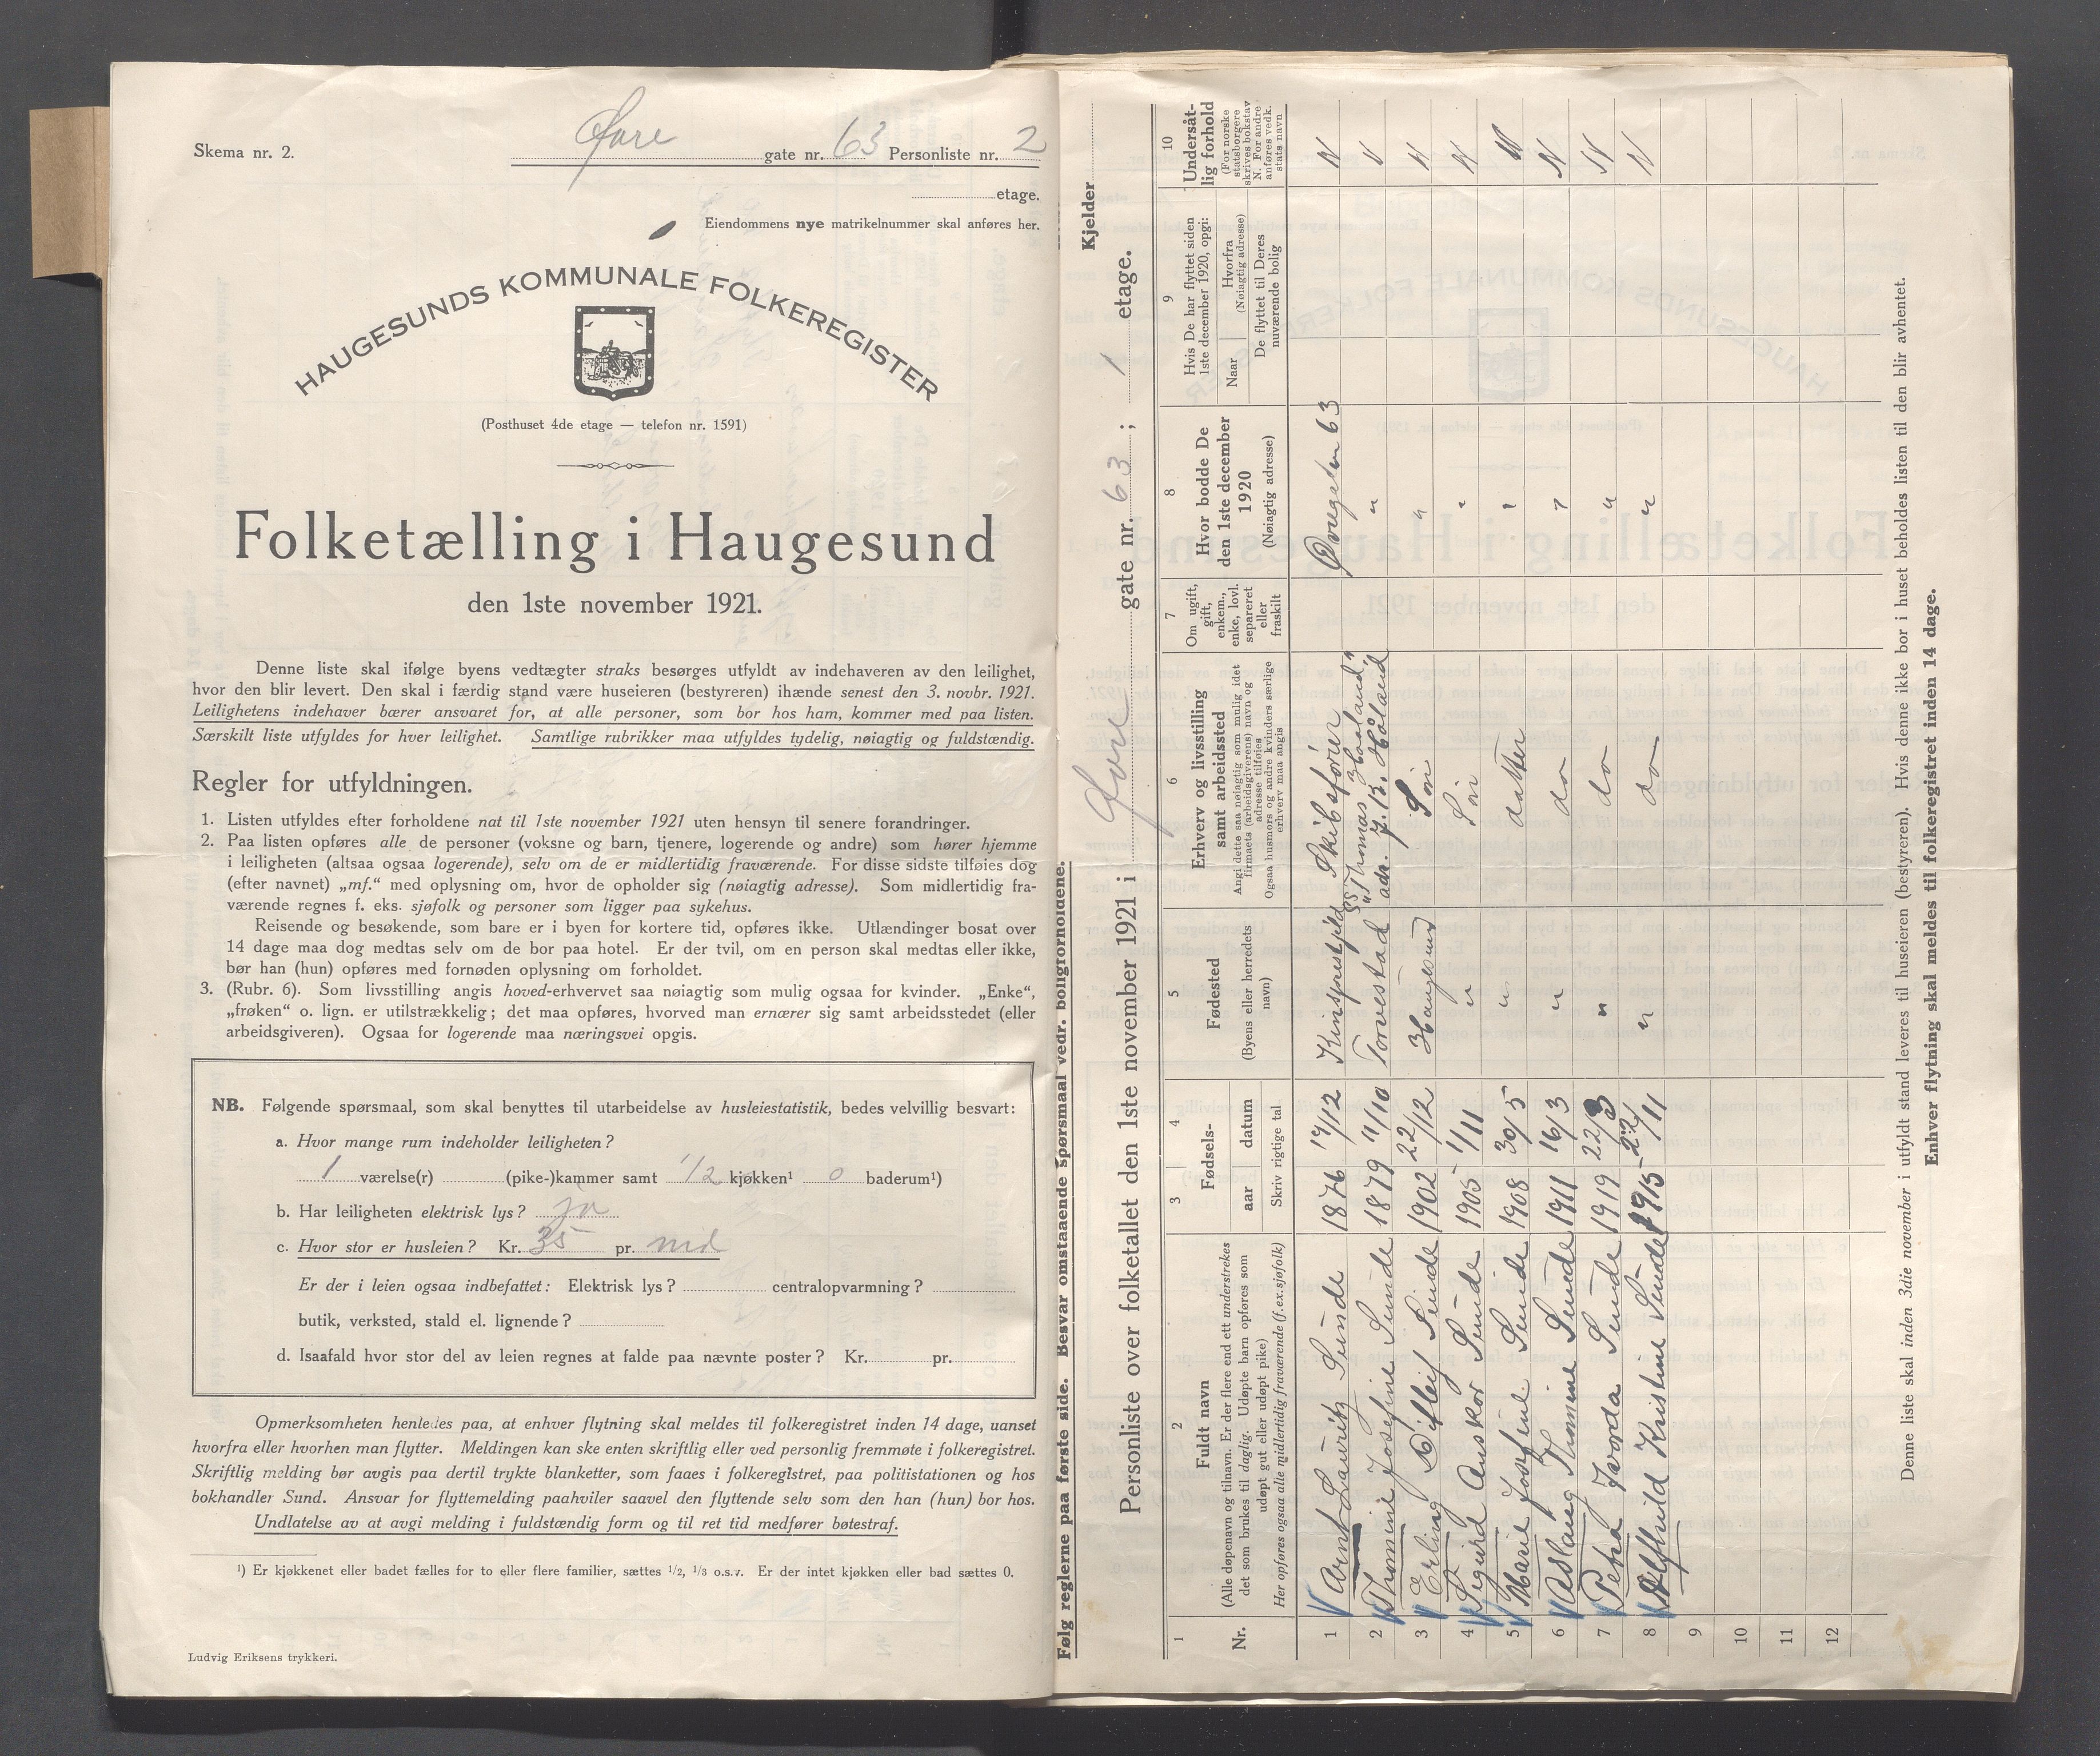 Skema nr. 2.
Øvre gate nr. 63 Personliste nr. 2
etage.
Eiendommens nye matrikelnummer skal anføres her.
HAUGESUNDS KOMMUNALE FOLKEREGISTER
(Posthuset 4de etage — telefon nr. 1591)
Folketælling i Haugesund
den 1ste november 1921.
Denne liste skal ifølge byens vedtægter straks besørges utfyldt av indehaveren av den leilighet,
hvor den blir levert. Den skal i færdig stand være huseieren (bestyreren) ihænde senest den 3. novbr. 1921.
Leilighetens indehaver bærer ansvaret for, at alle personer, som bor hos ham, kommer med paa listen.
Særskilt liste utfyldes for hver leilighet. Samtlige rubrikker maa utfyldes tydelig, nøiagtig og fuldstændig.
Regler for utfyldningen.
1. Listen utfyldes efter forholdene nat til 1ste november 1921 uten hensyn til senere forandringer.
2. Paa listen opføres alle de personer (voksne og barn, tjenere, logerende og andre) som hører hjemme
i leiligheten (altsaa ogsaa logerende), selv om de er midlertidig fraværende. For disse sidste tilføies dog
(efter navnet) „mf.“ med oplysning om, hvor de opholder sig (nøiagtig adresse). Som midlertidig fra-
værende regnes f. eks. sjøfolk og personer som ligger paa sykehus.
Reisende og besøkende, som bare er i byen for kortere tid, opføres ikke. Utlændinger bosat over
14 dage maa dog medtas selv om de bor paa hotel. Er der tvil, om en person skal medtas eller ikke,
bør han (hun) opføres med fornøden oplysning om forholdet.
3. (Rubr. 6). Som livsstilling angis hoved-erhvervet saa nøiagtig som mulig ogsaa for kvinder. „Enke“,
„frøken“ o. lign. er utilstrækkelig; det maa opføres, hvorved man ernærer sig samt arbeidsstedet (eller
arbeidsgiveren). Ogsaa for logerende maa næringsvei opgis.
NB. Følgende spørsmaal, som skal benyttes til utarbeidelse av husleiestatistik, bedes velvillig besvart:
a. Hvor mange rum indeholder leiligheten?
1 værelse(r) (pike-)kammer samt 1/2 kjøkken¹ 0 baderum¹)
b. Har leiligheten elektrisk lys? ja
c. Hvor stor er husleien? Kr. 35 pr. md
Er der i leien ogsaa indbefattet: Elektrisk lys? centralopvarmning?
butik, verksted, stald el. lignende?
d. Isaafald hvor stor del av leien regnes at falde paa nævnte poster? Kr. pr.
Opmerksomheten henledes paa, at enhver flytning skal meldes til folkeregistret inden 14 dage, uanset
hvorfra eller hvorhen man flytter. Meldingen kan ske enten skriftlig eller ved personlig fremmøte i folkeregistret.
Skriftlig melding bør avgis paa dertil trykte blanketter, som faaes i folkeregistret, paa politistationen og hos
bokhandler Sund. Ansvar for flyttemelding paahviler saavel den flyttende selv som den han (hun) bor hos.
Undlatelse av at avgi melding i fuldstændig form og til ret tid medfører bøtestraf.
¹) Er kjøkkenet eller badet fælles for to eller flere familier, sættes 1/2, 1/3 o.s.v. Er der intet kjøkken eller bad sættes 0.
Ludvig Eriksens trykkeri.
Følg reglerne paa første side. Besvar omstaaende spørsmaal vedr. boligforholdene.
Kjelder
Personliste over folketallet den 1ste november 1921 i Øvre gate nr. 63 ; 1 etage.
1 2 3 4 5 6 7 8 9 10
Nr.
Fuldt navn
(Alle døpenavn og tilnavn. Er der flere end ett understrekes
det som brukes til daglig. Udøpte barn opføres som
udøpt gut eller udøpt pike)
Her opføres ogsaa alle midlertidig fraværende (f.ex. sjøfolk)
Fødsels-
aar datum
Skriv rigtige tal
Fødested
(Byens eller herredets
navn)
Erhverv og livsstilling
samt arbeidssted
Angi dette saa nøiagtig som mulig idet
firmaets (arbeidsgiverens) navn og
adresse tilføies
Ogsaa husmors og andre kvinders særlige
erhverv maa angis
Om ugift,
gift,
enkem.,
enke, lovl.
separeret
eller
fraskilt
Hvor bodde De
den 1ste december
1920
(Nøiagtig adresse)
Hvis De har flyttet siden
1ste december 1920, opgi:
Naar
Hvorfra
(Nøiagtig adresse)
De flyttet til Deres
nuværende bolig
Undersåt-
lig forhold
(For norske
statsborgere
skrives bokstav
N. For andre
anføres vedk.
stats navn
1 Arnt Lauritz Sunde 1876 17/12 Skibsfører Øvregaten 63 N
2 Thomine Josefine Sunde 1879 11/10 Torvestad "Thomas Haaland" adr. J. B. Håland " N
3 Erling Sunde 1902 22/12 Haugesund Søn " N
4 Sigurd Sunde 1905 1/11 " Søn " N
5 Marie Josefine Sunde 1908 30/5 " datter " N
6 Aslaug Thomine Sunde 1911 16/3 " do " N
7 Petra Sunde 1919 22/3 " do " N
8 Alfhild Kristine Sunde 1915 22/11 " do " N
9
10
11
12
Denne liste skal inden 3die november i utfyldt stand leveres til huseieren (bestyreren). Hvis denne ikke bor i huset beholdes listen til den blir avhentet.
Enhver flytning skal meldes til folkeregistret inden 14 dage.